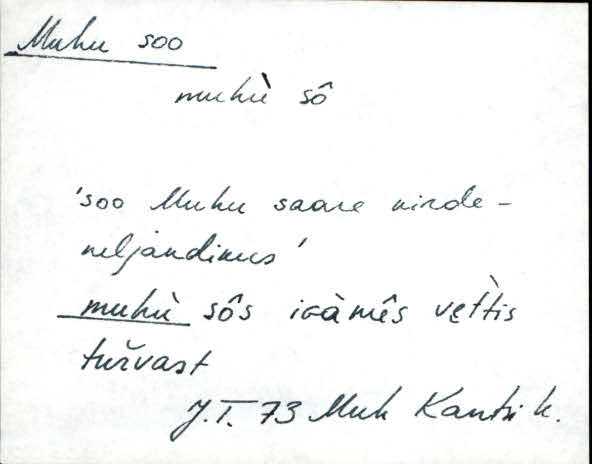 Muhu soo
muhù sô
'soo Muhu saare kirde-
neljandikus'
muhù sôs igàmês vętìs
turvast
J.T. 73 Muh Kantsi k.